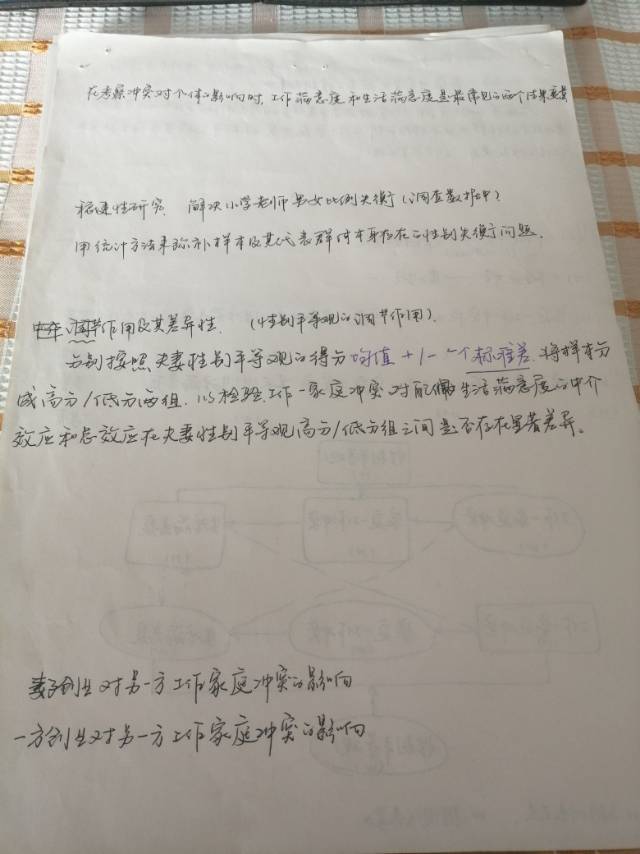 在考察冲突对个体的影响时,工作满意度和生活满意度是最常见的两个结果变量
稳健性研究. 解决小学老师男女比例失衡(调查数据中)
用统计方法来弥补样本及其代表群体本身存在的性别失衡问题.
调节作用及其差异性. (性别平等观的调节作用).
分别按照夫妻性别平等观的得分均值+/-一个标准差,将样本分
成高分/低分两组.以检验工作-家庭冲突对配偶生活满意度的中介
效应和总效应在夫妻性别平等观高分/低分组之间是否存在显著差异。
妻子创业对另一方工作家庭冲突的影响
一方创业对另一方工作家庭冲突的影响